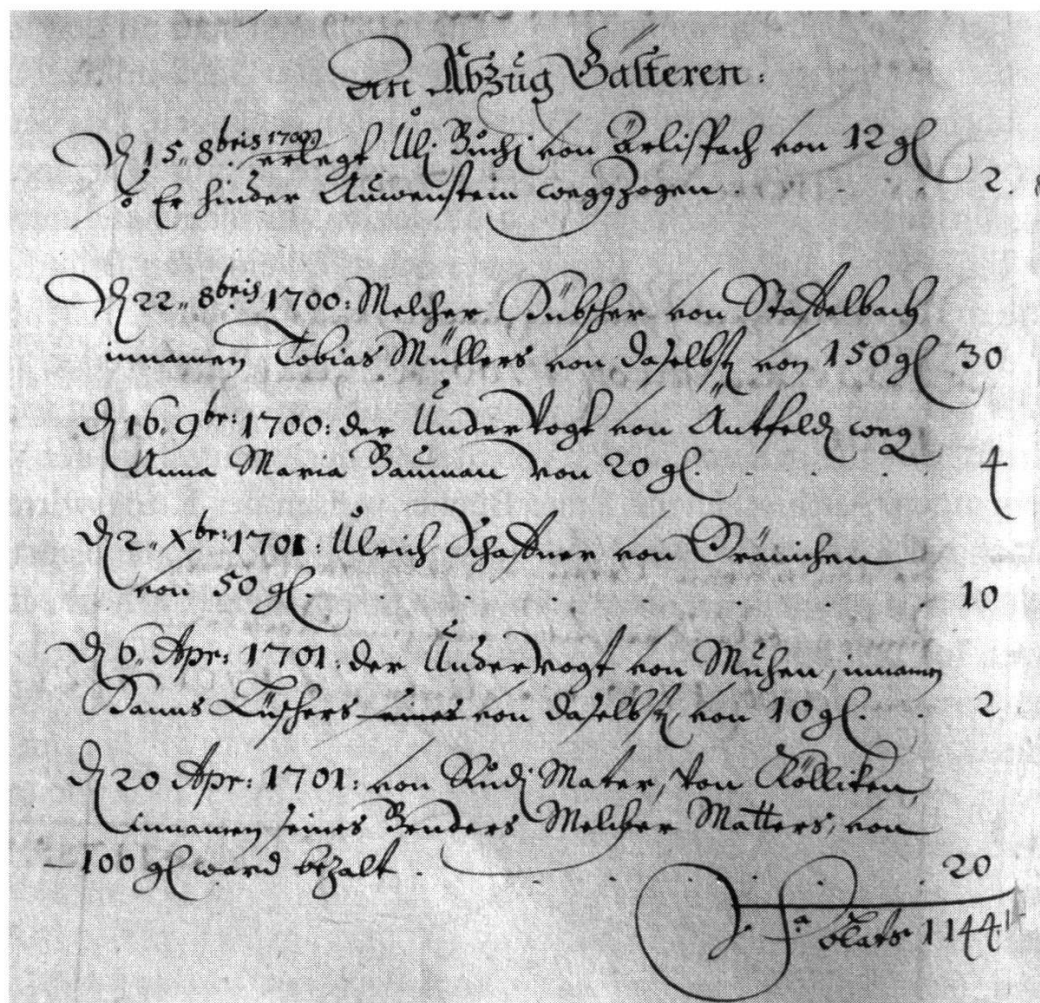 An Abzug Gälteren:
Dn 15. 8bris 1700 erlegt Uli Buchi von Ärlispach von 12 gl
so Er hinder Auwenstein weggzogen . . . 2.
Dn 22. 8bris 1700: Melcher Hübscher von Staffelbach
innamen Tobias Müllers von daselbst von 150 gl 30
Dn 16. 9br: 1700: der Undervogt von Äntfeld weg
Anna Maria Bauman von 20 gl. . . . 4
Dn 2. Xbr: 1701: Ulrich Schaffner von Gränichen
von 50 gl. . . . . . 10
Dn 6. Apr: 1701: der Undervogt von Muhen, innamen
Hanns Lüschers eines von daselbst, von 10 gl. . 2
Dn 20 Apr: 1701: von Rudi Mater, von Kölliken,
innamen seines Bruders Melcher Matters, von
100 gl ward bezalt . . . . 20
Sa Lats 1144